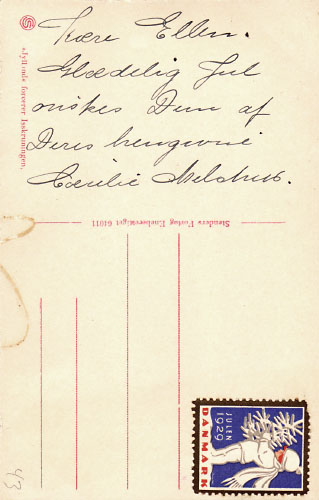 Kære Ellen.
Glædelig Jul
ønskes Dem af
Deres hengivne
Cecilie
Stenders Forlag Eneberettiget 64011
JULEN
1929
DANMARK
43